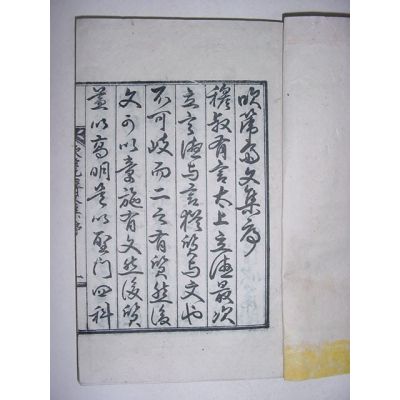 文集序
穆叔有言太上立德最次
立言德与言猶質与文也
不可歧而二之有質然後
文可以章施有文然後質
益以高明是以聖门四科